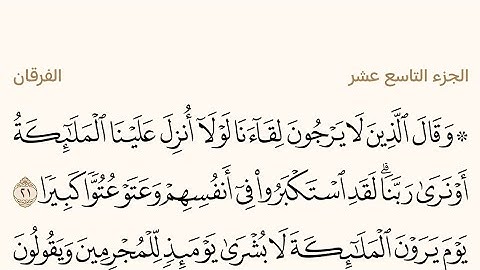 الجزء التاسع عشر الفرقان
۞ وَقَالَ ٱلَّذِينَ لَا يَرۡجُونَ لِقَآءَنَا لَوۡلَآ أُنزِلَ عَلَيۡنَا ٱلۡمَلَٰٓئِكَةُ
أَوۡ نَرَىٰ رَبَّنَاۗ لَقَدِ ٱسۡتَكۡبَرُواْ فِيٓ أَنفُسِهِمۡ وَعَتَوۡ عُتُوّٗا كَبِيرٗا ٢١
يَوۡمَ يَرَوۡنَ ٱلۡمَلَٰٓئِكَةَ لَا بُشۡرَىٰ يَوۡمَئِذٖ لِّلۡمُجۡرِمِينَ وَيَقُولُونَ